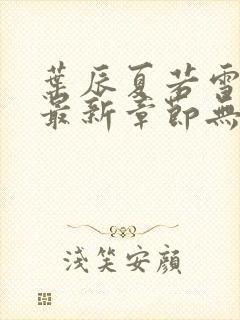 葉辰夏若雪
最新章節無
淺笑安顔